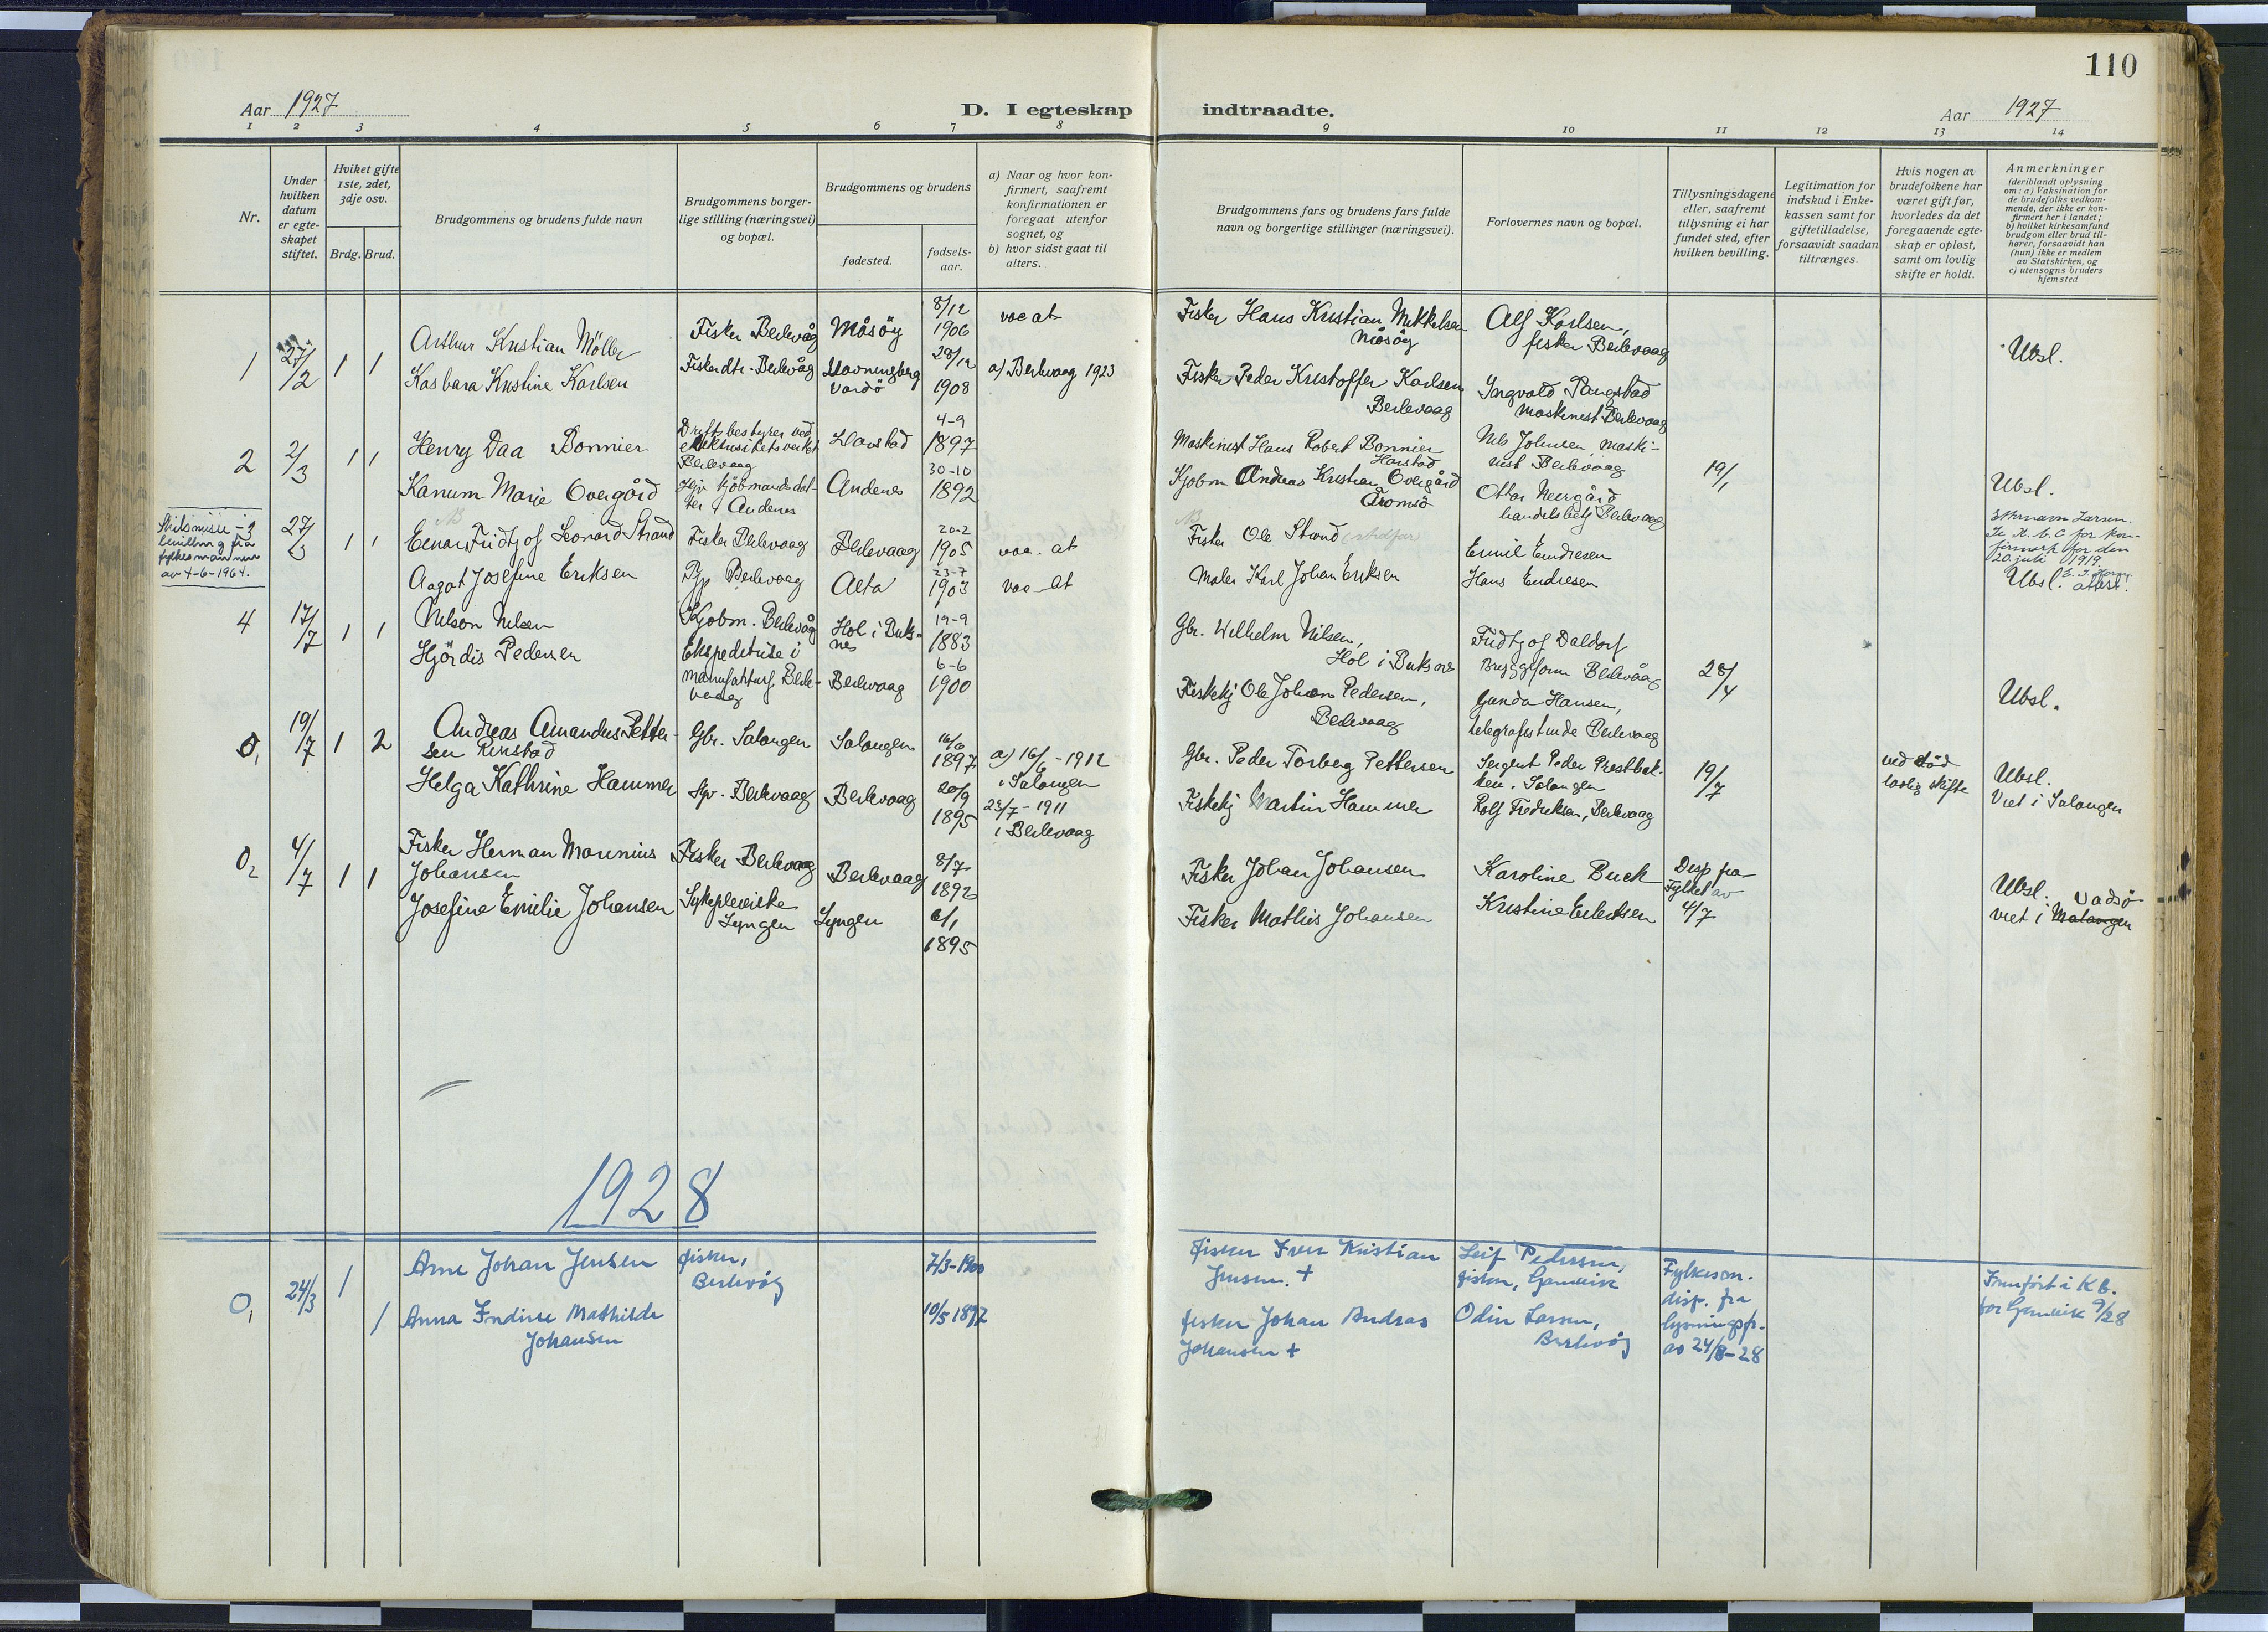 110
Aar 1927
D. I egteskap indtraadte.
Aar 1927
1 2 3 4 5 6 7 8 9 10 11 12 13 14
Nr.
Under
hvilken
datum
er egte-
skapet
stiftet.
Hviket gifte
1ste, 2det,
3dje osv.
Brdg. Brud.
Brudgommens og brudens fulde navn
Brudgommens borger-
lige stilling (næringsvei)
og bopæl.
Brudgommens og brudens
fødested.
fødsels-
aar.
a) Naar og hvor kon-
firmert, saafremt
konfirmationen er
foregaat utenfor
sognet, og
b) hvor sidst gaat til
alters.
Brudgommens fars og brudens fars fulde
navn og borgerlige stillinger (næringsvei).
Forlovernes navn og bopæl.
Tillysningsdagene
eller, saafremt
tillysning ei har
fundet sted, efter
hvilken bevilling.
Legitimation for
indskud i Enke-
kassen samt for
giftetilladelse,
forsaavidt saadan
tiltrænges.
Hvis nogen av
brudefolkene har
været gift før,
hvorledes da det
foregaaende egte-
skap er opløst,
samt om lovlig
skifte er holdt.
Anmerkninger
(deriblandt oplysning
om: a) Vaksination for
de brudefolks vedkom-
mende, der ikke er kon-
firmert her i landet;
b) hvilket kirkesamfund
brudgom eller brud til-
hører, forsaavidt han
(hun) ikke er medlem
av Statskirken, og
c) utensogns bruders
hjemsted
1 27/2 1 1
Arthur Kristian Möller
Fisker Berlevåg
Måsöy
8/12
1906
vac at
Fisker Hans Kristian Mikkelsen
Måsöy
Alf Karlsen,
fisker Berlevaag
Ubsl.
Kasbara Kristine Karlsen
Fiskerdtr. Berlevåg
Havningberg
Vardö
28/12
1908
a) Berlevaag 1923
Fisker Peder Kristoffer Karlsen
Berlevaag
Ingvald Tangstad
Maskinist Berlevaag
2 2/3 1 1
Henry Daa Bonnier
Driftsbestyrer ved
elektrisitetsverket
Berlevaag
Harstad
4-9
1897
Maskinist Hans Robert Bonnier
Harstad
Nils Johnsen, maski-
nist Berlevaag
19/1
Ubsl.
Kanum Marie Overgård
Hjv. Kjöbmandsdat-
ter, Andenes
Andenes
30-10
1892
Kjøbm Andreas Kristian Overgård
Tromsö
Ottar Neergård
handelsbetj Berlevaag
Skilsmisse
bevilling fra
fylkesmannen
av 4-6-1964.
3 27/3 1 1
NB
Einar Fridtjof Leonard Strand
Fisker Berlevaag
Berlevaag
20-2
1905
vac. at
NB
Fisker Ole Strand (stedfar
Emil Endresen
Ekternavn Larsen.
Se K. b. C for kon-
firmerte for den
20 juli 1919.
Aagot Josefine Eriksen
Pge Berlevaag
Alta
23-7
1903
vac at
Maler Karl Johan Eriksen
Hans Endresen
Ubsl. attest.
4 17/7 1 1
Nilson Nilsen
Kjøbm. Berlevåg
Hol i Buks-
nes
19-9
1883
Gbr. Wilhelm Nilsen,
Hol i Buksnes
Fridtjof Daldorf
Bryggeform Berlevåg
28/4
Ubsl.
Hjördis Pedersen
Ekspeditrise i
Manufakturf. Berle-
vaag
Berlevaag
6-6
1900
Fiskekj Ole Johan Pedersen,
Berlevaag
Gunda Hansen,
telegrafistinde Berlevaag
0, 19/7 1 2
Andreas Amandus Petter-
sen Rinstad
Gbr. Salangen
Salangen
16/6
1897
a) 16/6-1912
i Salangen
Gbr. Peder Torberg Pettersen
Sergent Peder Prestbak-
ken, Salangen
19/7
ved död
lovlig skifte
Ubsl.
Viet i Salangen
Helga Kathrine Hammer
Hjv. Berlevaag
Berlevaag
20/9
1895
23/7-1911
i Berlevaag
Fiskekj Martin Hammer
Rolf Fredriksen, Berlevaag
02 4/7 1 1
Fisker Herman Marenius
Johansen
Fisker Berlevaag
Berlevaag
8/7
1892
Fisker Johan Johansen
Karoline Buck
Disp fra
Fylket av
4/7
Ubsl. Vadsö
viet i Malangen
Josefine Emilie Johansen
Sykepleierske
Lyngen
Lyngen
6/1
1895
Fisker Mathis Johansen
Kristine Eilertsen
1928
0, 24/3 1
Arne Johan Jensen
fisker,
Berlevåg
7/3-1900
fisker Iver Kristian
Jensen. +
Leif Pedersen,
fisker, Gamvik
Fylkesm.
disp. fra
lysningspl.
av 24/3-28
Innført i Kb.
for Gamvik 9/28
1
Anna Indine Mathilde
Johansen
10/5 1897
fisker Johan Andras
Johansen +
Odin Larsen,
Berlevåg